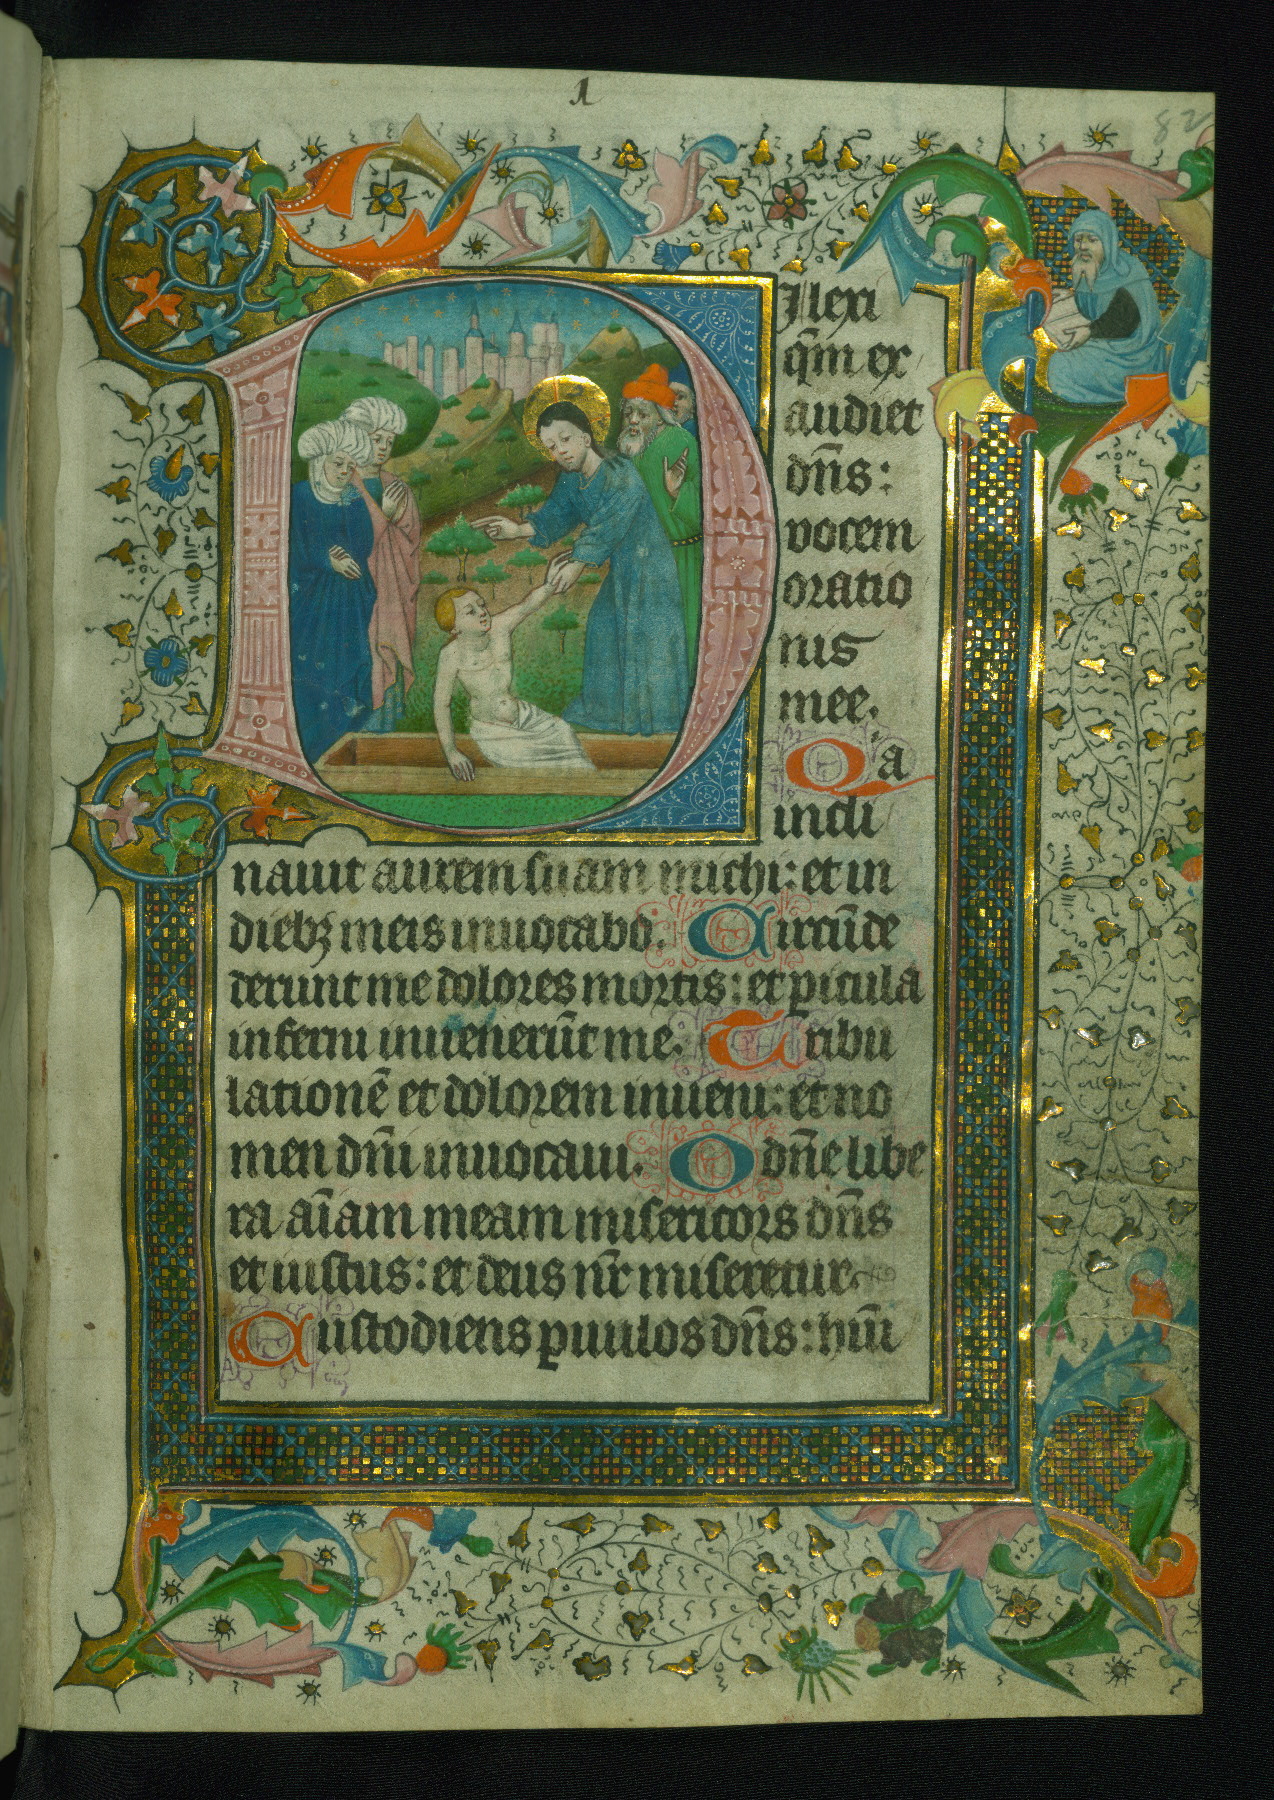 1
82
Dilexi
qm̄ ex
audiet
dn̄s:
vocem
oratio
nis
mee.
Qia
incli
nauit aurem suam michi: et in
diebꝫ meis inuocabo. Circūde
derunt me dolores mortis: et picula
inferni inuenerūt me. Tribu
lationē et dolorem inueni: et no
men dn̄i inuocaui. O dn̄e libe
ra aīam meam misericors dn̄s
et iustus: et deus nr̄ miseretur.
Custodiens ꝑuulos dn̄s: hūi